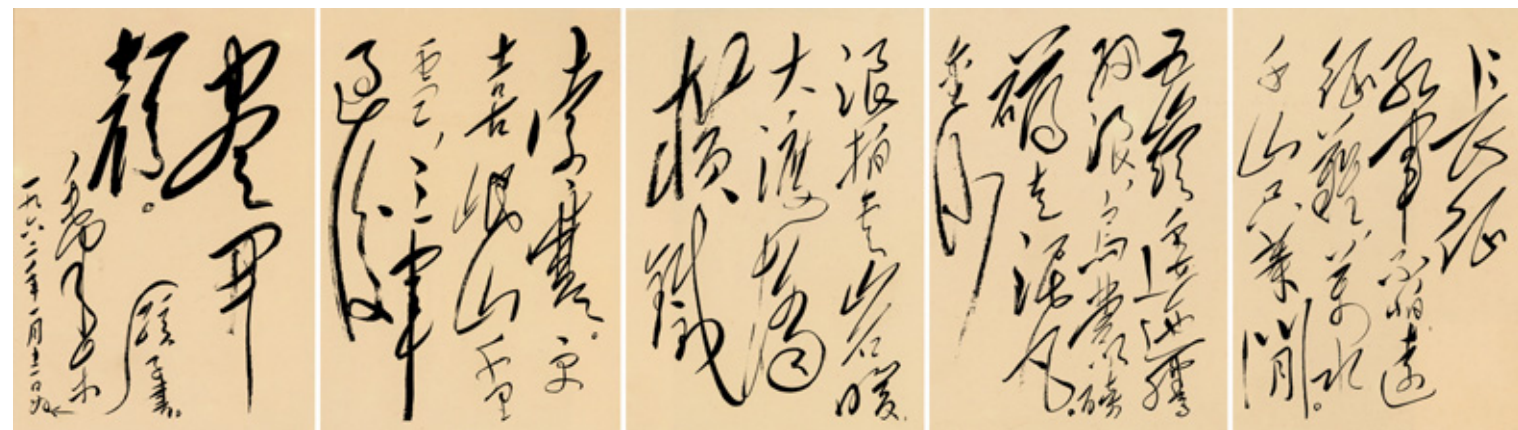 长征
紅軍不怕遠
征難，萬水
千山只等閒。
五嶺逶迤騰
細浪，烏蒙磅
礴走泥丸。
金沙
浪拍雲岩暖，
大渡橋
橫鐵
索寒。更
喜岷山千里
雪，三軍
過後
盡開
顏。
毛澤東
一九六二年一月十二日